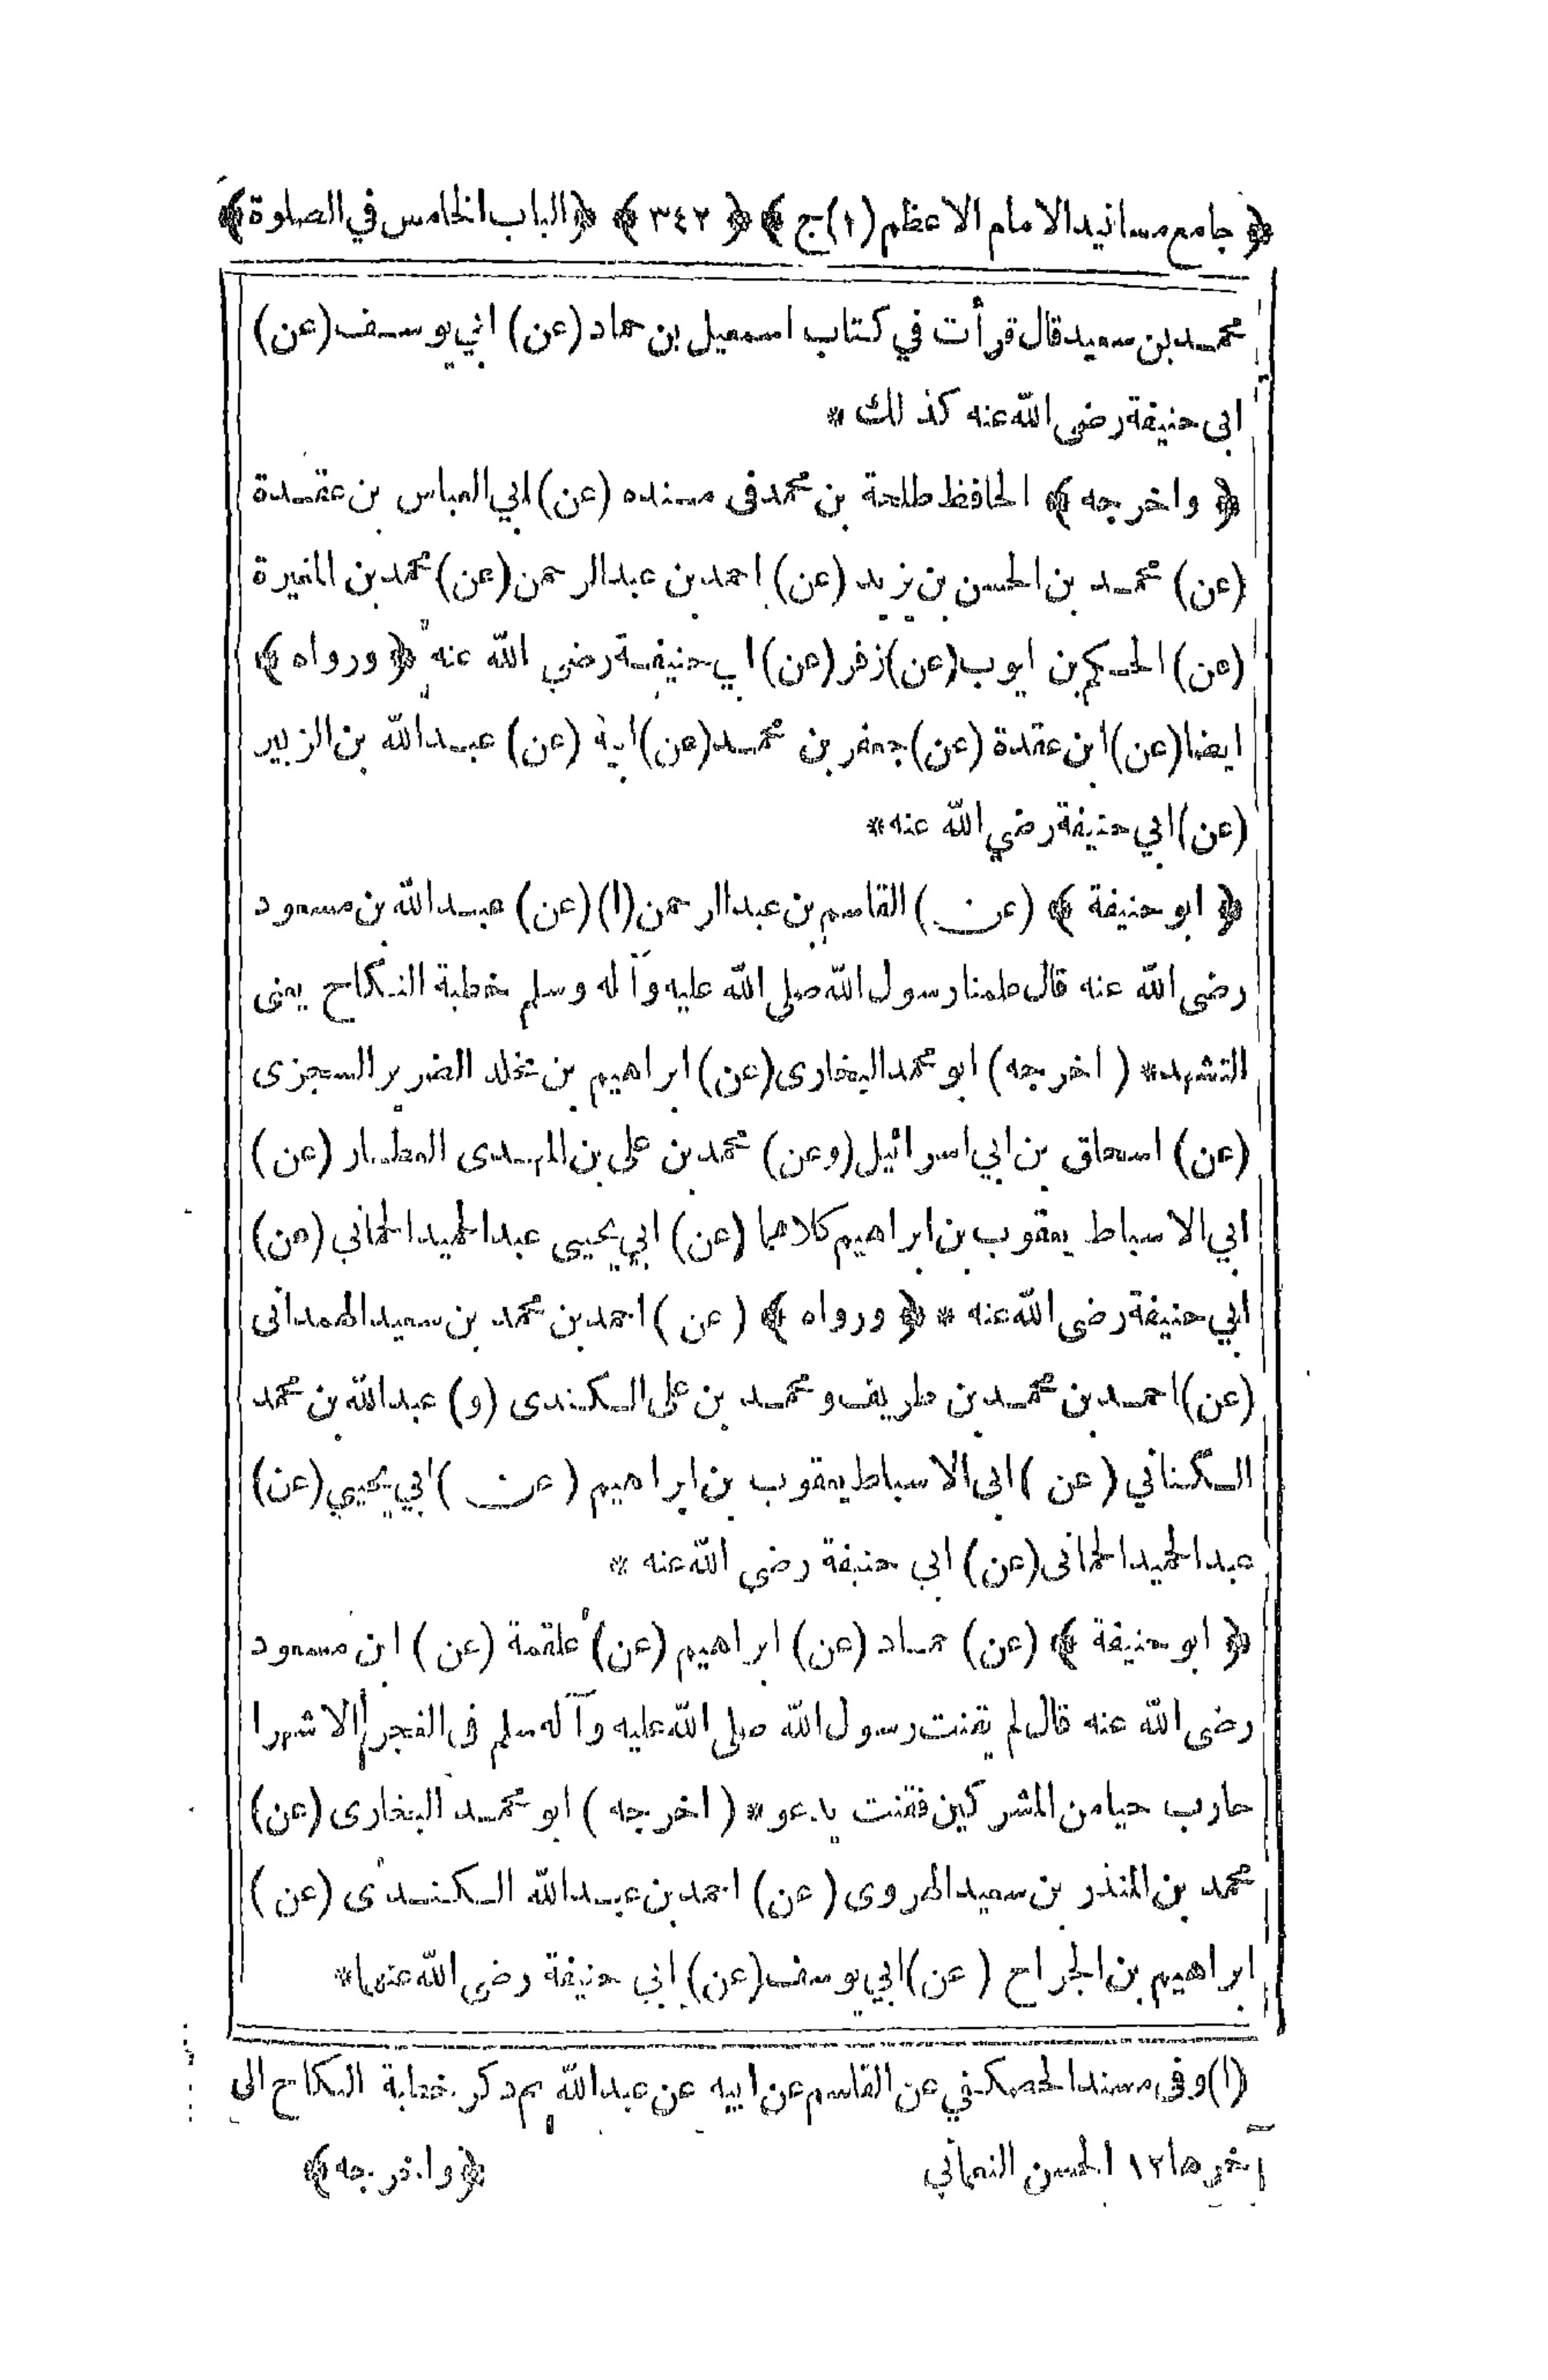 ﴿ جامع مسانيد الامام الاعظم (١) ج ﴾ ﴿ ٣٤٢ ﴾ ﴿ الباب الخامس في الصلوة ﴾
محمد بن سعيد قال قرأت في كتاب اسمعيل بن حماد (عن) ابي يوسف (عن)
ابى حنيفة رضى الله عنه كذلك *
﴿ واخرجه ﴾ الحافظ طلحة بن محمد فى مسنده (عن) ابي العباس بن عقدة
(عن) محمد بن الحسن بن يزيد (عن) احمد بن عبد الرحمن (عن) محمد بن المغيرة
(عن) الحكم بن ايوب (عن) زفر (عن) ابي حنيفة رضي الله عنه ﴿ ورواه ﴾
ايضا (عن) ابن عقدة (عن) جعفر بن محمد (عن) ابيه (عن) عبد الله بن الزبير
(عن) ابي حنيفة رضي الله عنه *
﴿ ابو حنيفة ﴾ (عن) القاسم بن عبد الرحمن (١) (عن) عبد الله بن مسعود
رضى الله عنه قال علمنا رسول الله صلى الله عليه وآله وسلم خطبة النكاح يعنى
التشهد * ( اخرجه ) ابو محمد البخارى (عن) ابراهيم بن مخلد الضرير السجزى
(عن) اسحاق بن ابي اسرائيل (وعن) محمد بن على بن المهدى العطار (عن)
ابي الاسباط يعقوب بن ابراهيم كلاهما (عن) ابي يحيى عبد الحميد الحماني (عن)
ابي حنيفة رضى الله عنه * ﴿ ورواه ﴾ ( عن ) احمد بن محمد بن سعيد الهمدانى
(عن) احمد بن محمد بن طريف ومحمد بن على الكندى (و) عبد الله بن محمد
الكناني ( عن ) ابى الاسباط يعقوب بن ابراهيم ( عن ) ابي يحيي (عن)
عبد الحميد الحمانى (عن) ابي حنيفة رضي الله عنه *
﴿ ابو حنيفة ﴾ (عن) حماد (عن) ابراهيم (عن) علقمة (عن) ابن مسعود
رضى الله عنه قال لم يقنت رسول الله صلى الله عليه وآله سلم فى الفجر الا شهرا
حارب حيا من المشركين فقنت يدعو * ( اخرجه ) ابو محمد البخارى (عن)
محمد بن المنذر بن سعيد الهروى ( عن ) احمد بن عبد الله الكندى (عن)
ابراهيم بن الجراح ( عن ) ابي يوسف (عن) ابي حنيفة رضى الله عنهما *
(١) وفى مسند الحصكفي عن القاسم عن ابيه عن عبد الله ثم ذكر خطبة النكاح الى
آخرها ١٢ الحسن النعماني
﴿ واخرجه ﴾